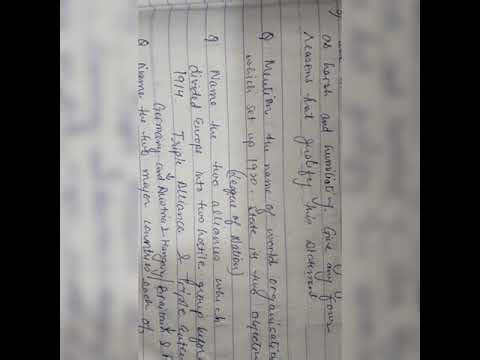 as harsh and humiliating. Give any four
reasons that justify this statement
Q Mention the name of world organisation
which set up 1920. State its two
(League of Nation)
Q Name the two alliances which
divided Europe into two hostile group before
1914 Triple Alliance & Triple
Germany and Austria & Hungary
Q Name the two major countries each of